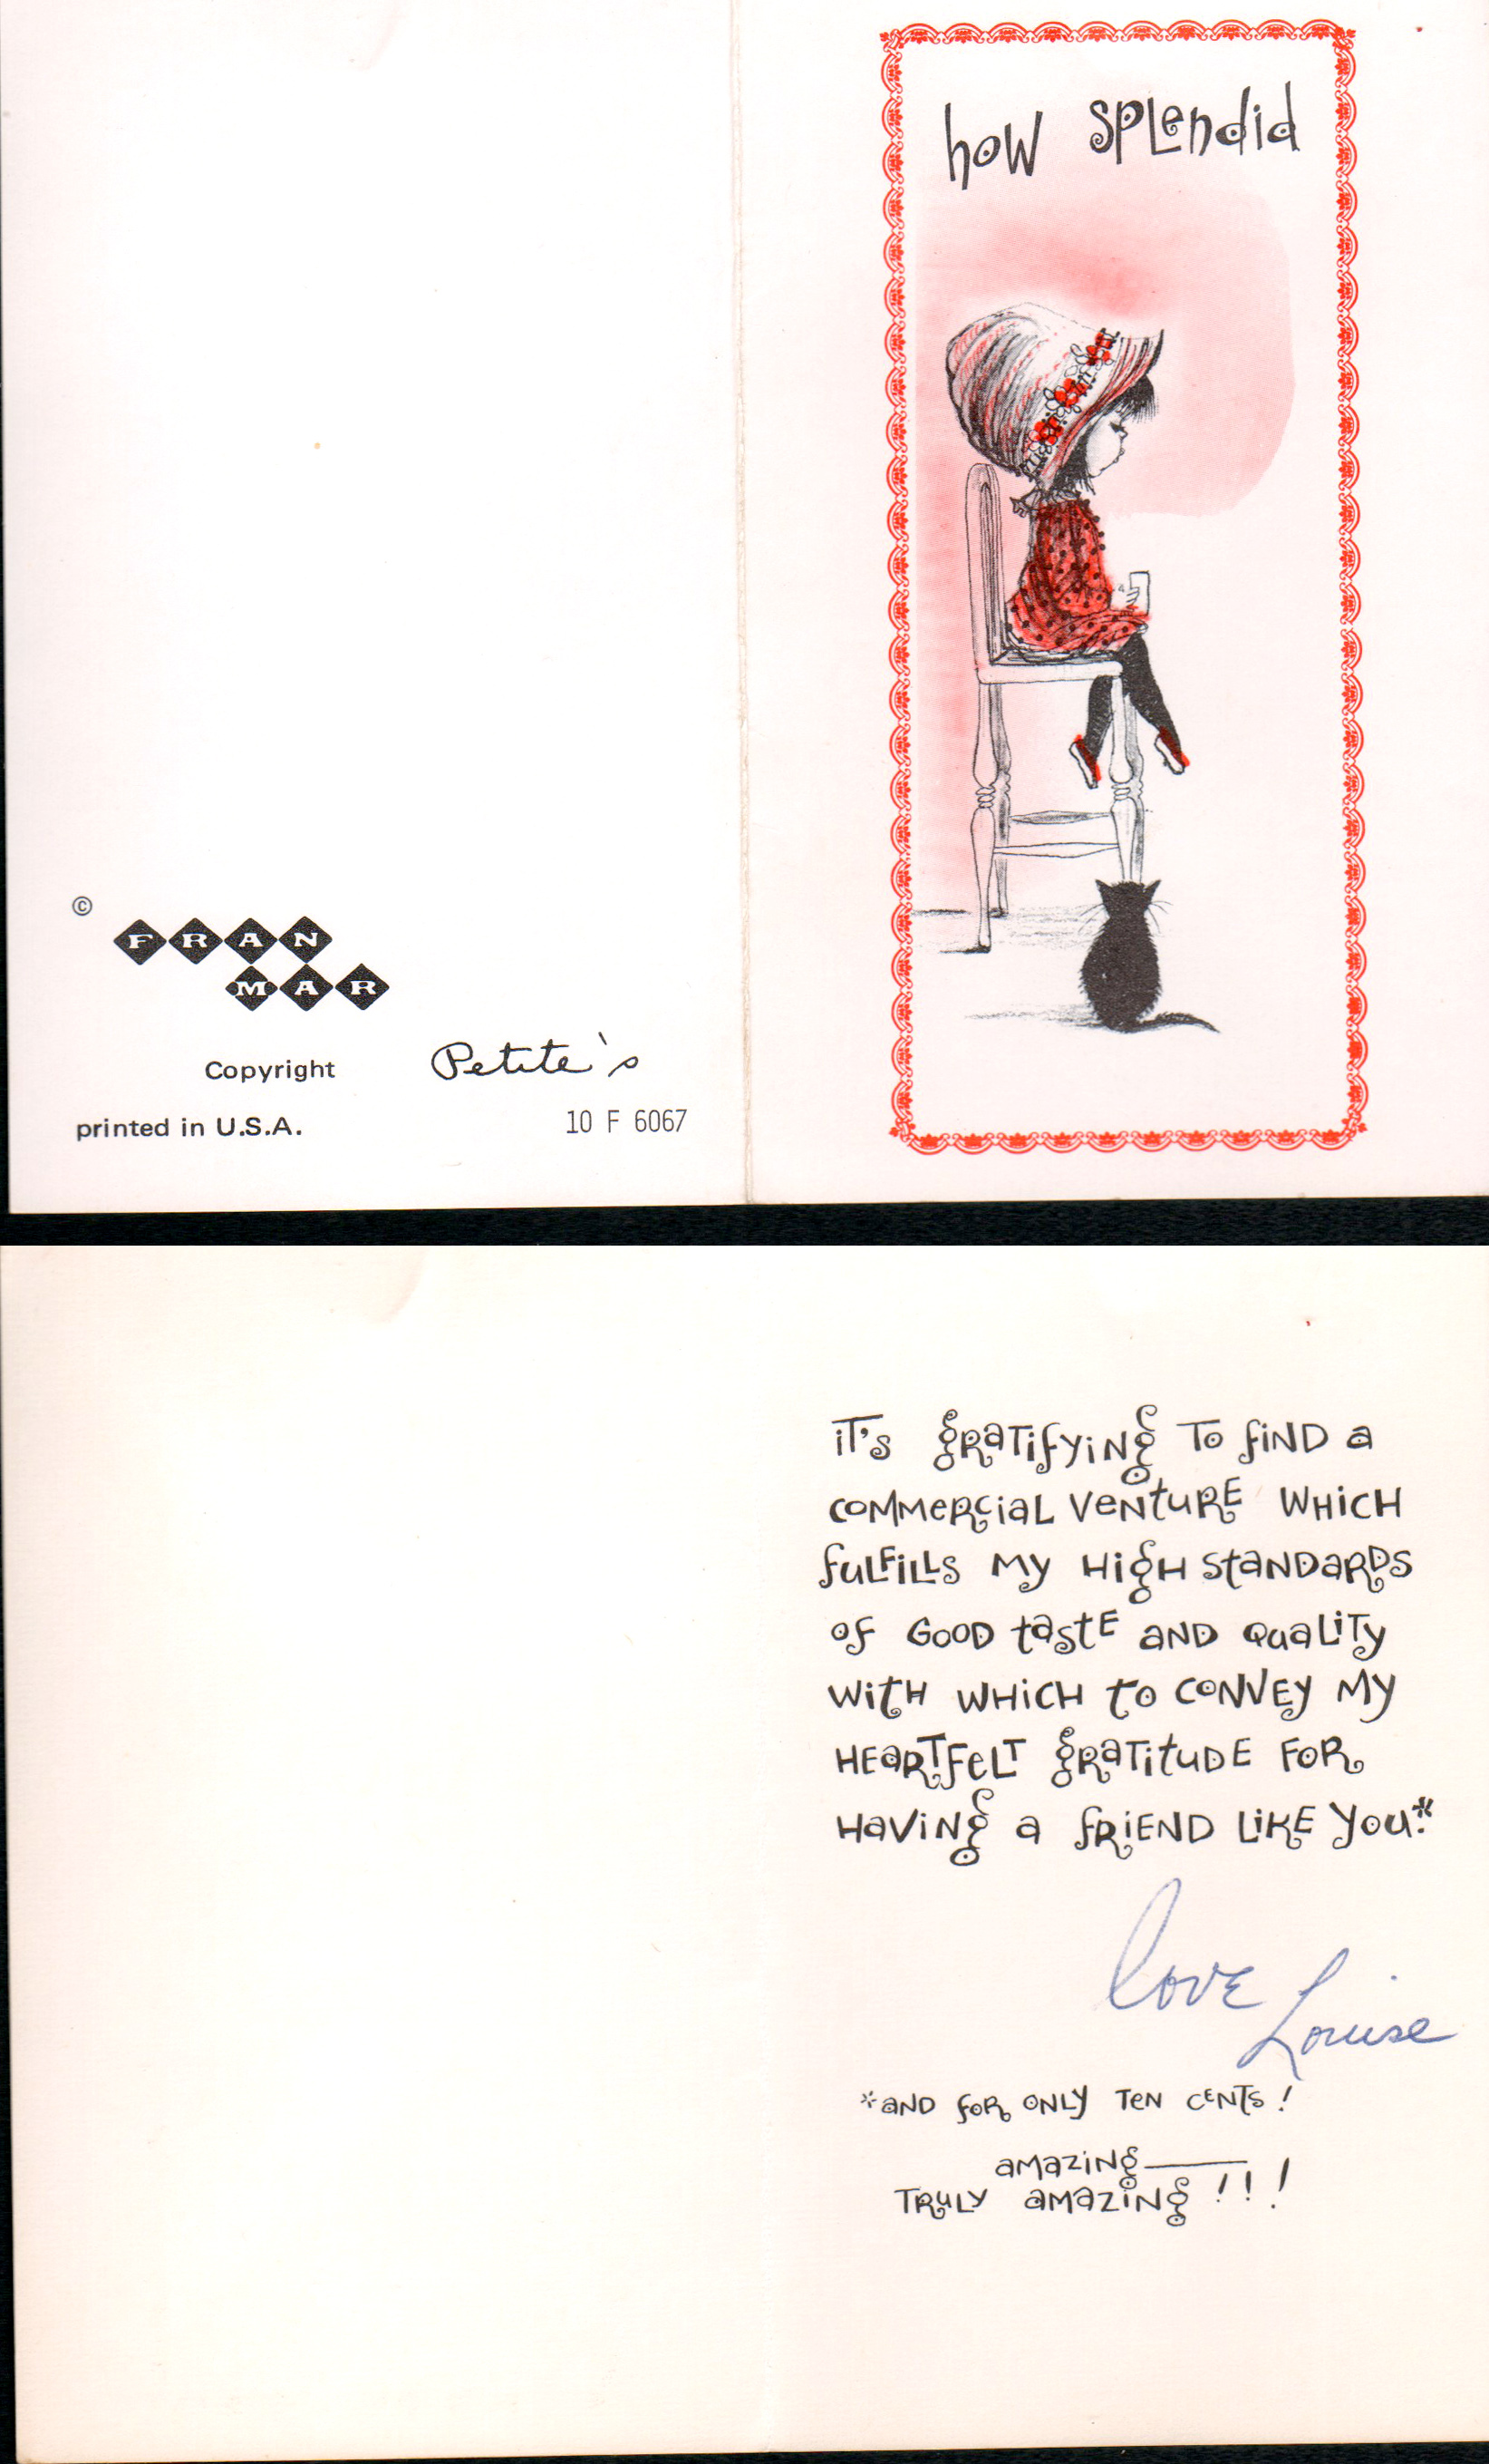 how splendid
©
FRAN
MAR
Copyright Petite's
printed in U.S.A. 10 F 6067
it's gratifying to find a
commercial venture which
fulfills my high standards
of good taste and quality
with which to convey my
heartfelt gratitude for
having a friend like you.*
love
Louise
*and for only ten cents!
amazing—
truly amazing!!!